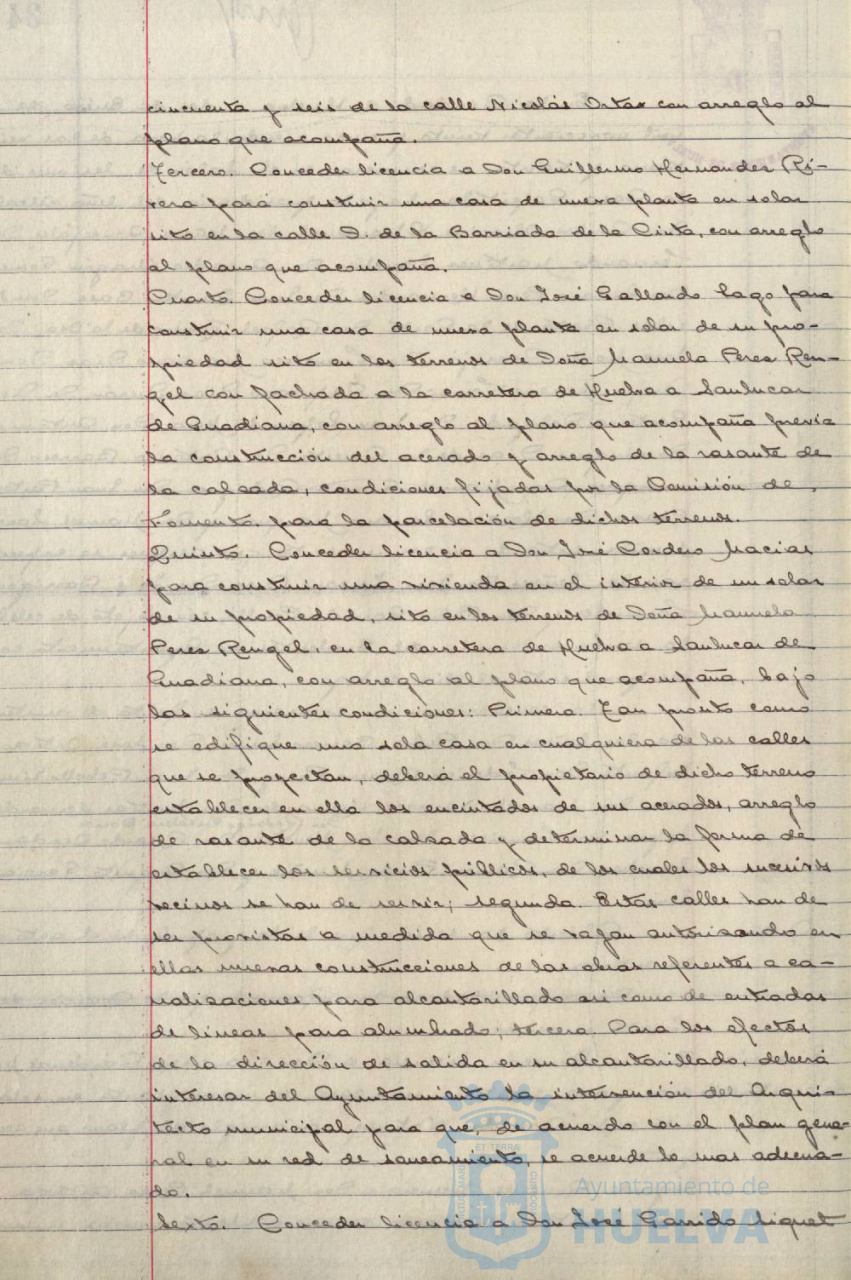 cincuenta y seis de la calle Nicolás Ortax con arreglo al
plano que acompaña.
Tercero. Conceder licencia a Don Guillermo Hernandez Ri-
vera para construir una casa de nueva planta en solar
sito en la calle D. de la Barriada de la Cinta, con arreglo
al plano que acompaña.
Cuarto. Conceder licencia a Don José Gallardo Lago para
construir una casa de nueva planta en solar de su pro-
piedad sito en los terrenos de Doña Manuela Perez Ren-
gel con fachada a la carretera de Huelva a Sanlucar
de Guadiana, con arreglo al plano que acompaña previa
la construcción del acerado y arreglo de la rasante de
la calzada, condiciones fijadas por la Comisión de
Fomento, para la parcelación de dichos terrenos.
Quinto. Conceder licencia a Don José Cordero Macias
para construir una vivienda en el interior de un solar
de su propiedad, sito en los terrenos de Doña Manuela
Perez Rengel, en la carretera de Huelva a Sanlucar de
Guadiana, con arreglo al plano que acompaña, bajo
las siguientes condiciones: Primera. Tan pronto como
se edifique una sola casa en cualquiera de las calles
que se proyectan, deberá el propietario de dicho terreno
establecer en ella los encintados de sus acerados, arreglo
de rasante de la calzada y determinar la forma de
establecer los servicios públicos, de los cuales los sucesivos
vecinos se han de servir; segunda. Estas calles han de
ser provistas a medida que se vayan autorizando en
ellas nuevas construcciones de las obras referentes a ca-
nalizaciones para alcantarillado asi como de entradas
de lineas para alumbrado; tercera. Para los efectos
de la dirección de salida en su alcantarillado, deberá
interesar del Ayuntamiento la intervención del Arqui-
tecto municipal para que, de acuerdo con el plan gene-
ral en su red de saneamiento, se acuerde lo mas adecua-
do.
Sexto. Conceder licencia a Don José Garrido Miquet
Ayuntamiento de
HUELVA